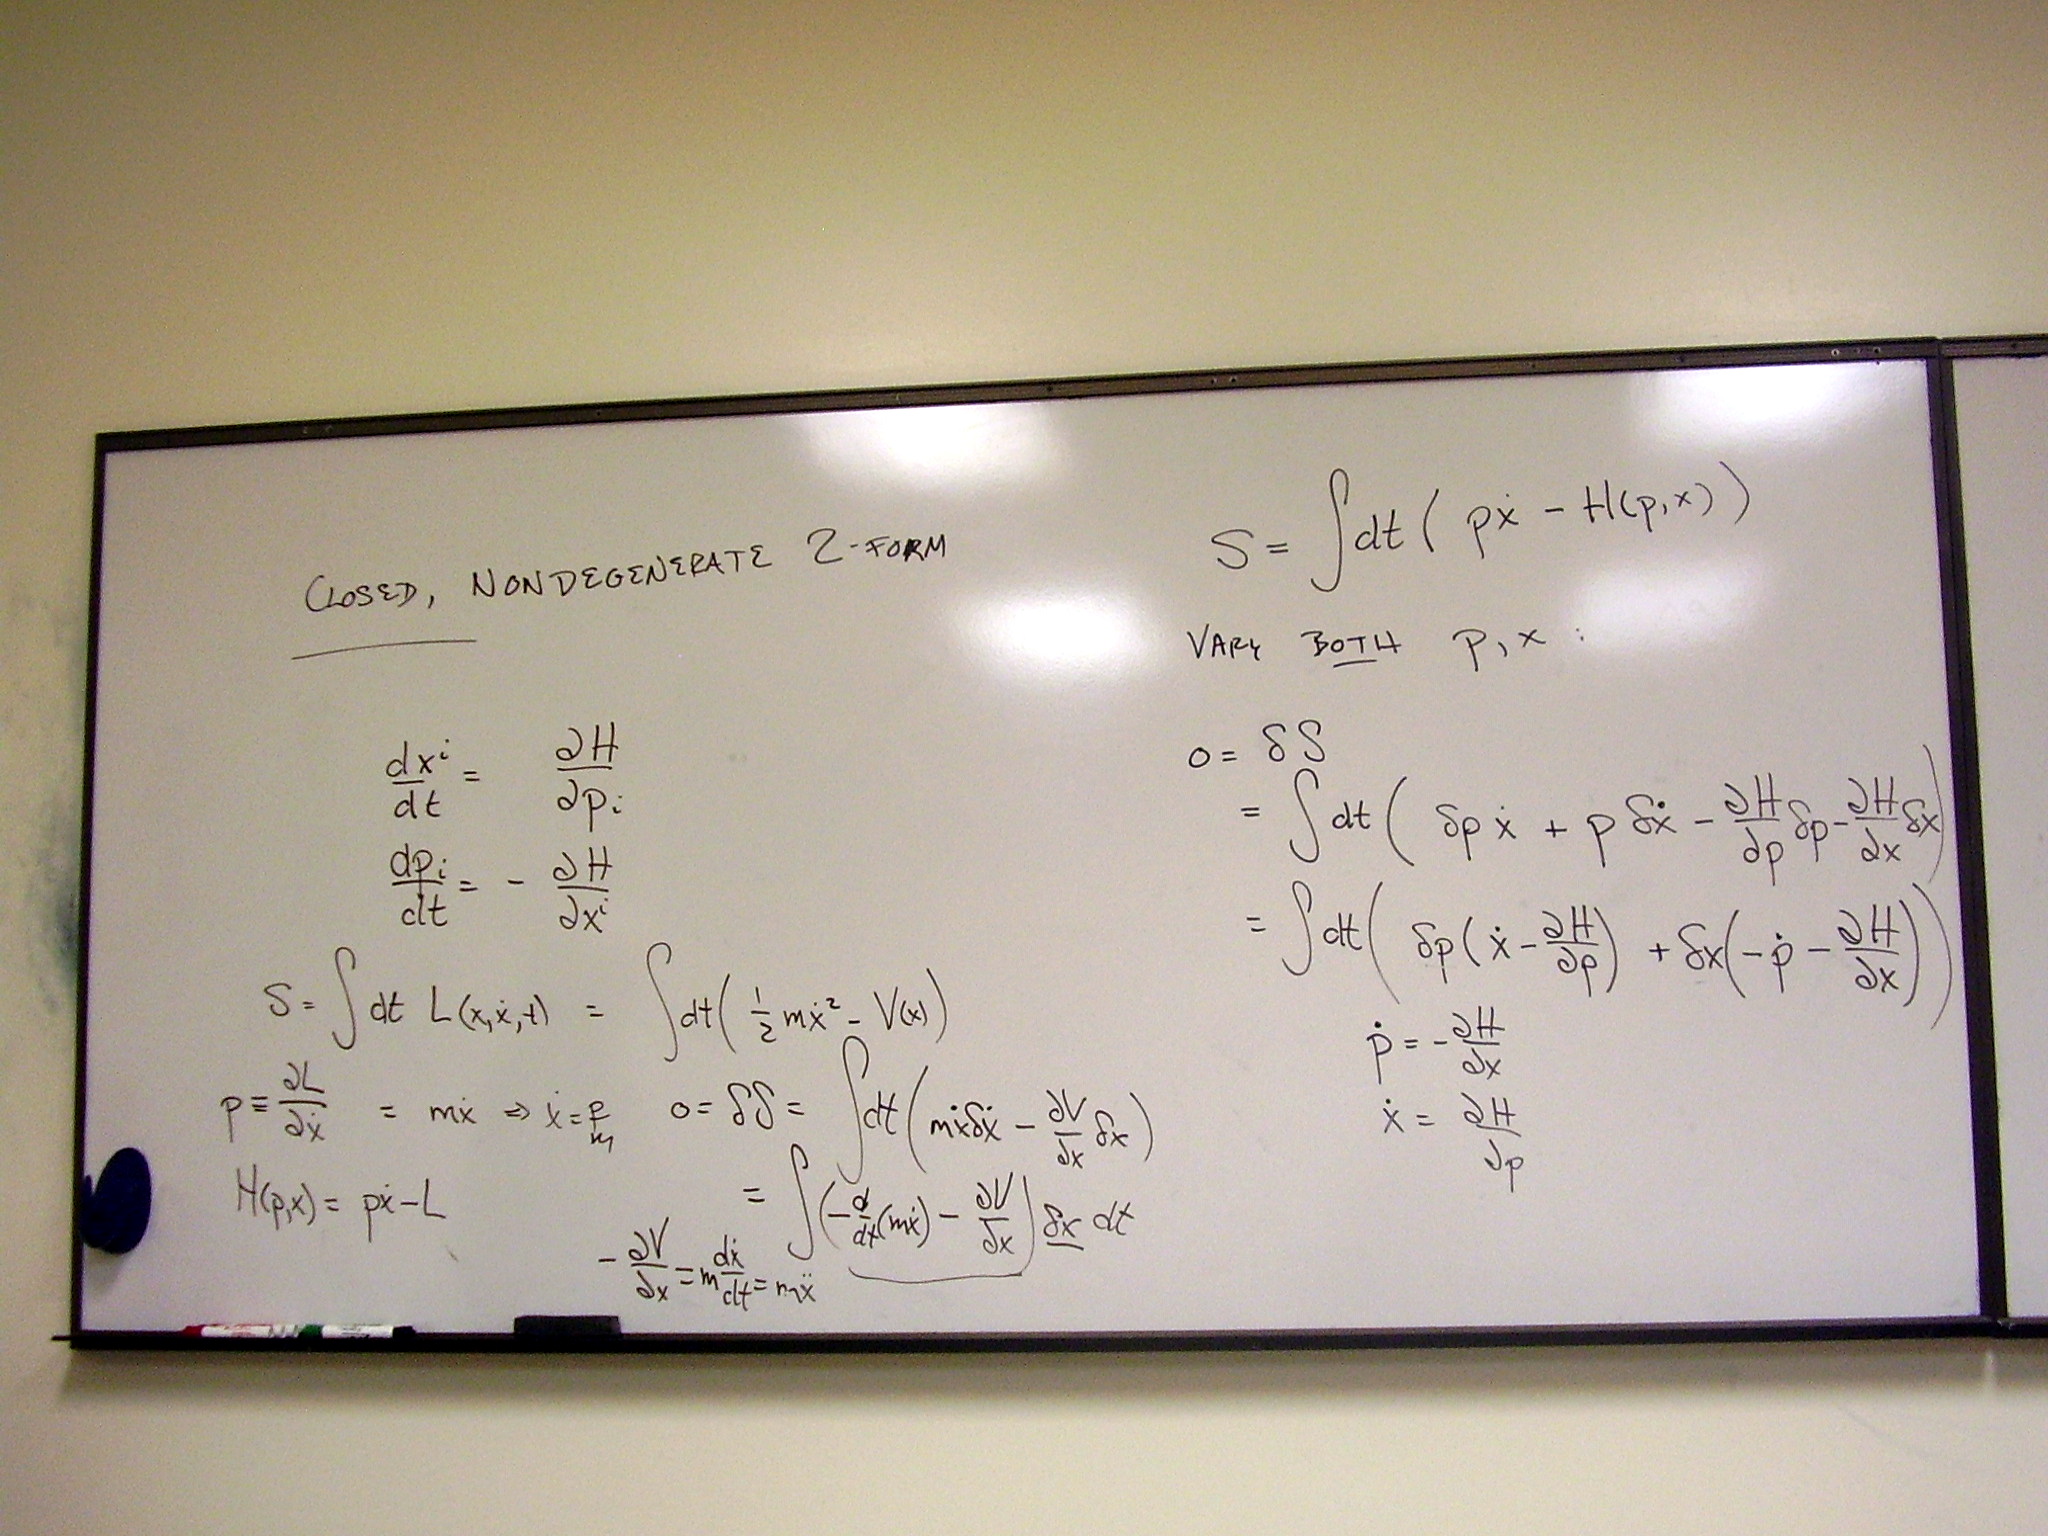 CLOSED, NONDEGENERATE 2-FORM
dxⁱ/dt = ∂H/∂pᵢ
dpᵢ/dt = - ∂H/∂xⁱ
S = ∫dt L(x,ẋ,t) = ∫dt( 1/2 mẋ² - V(x))
p ≡ ∂L/∂ẋ = mẋ ⇒ ẋ = p/m
H(p,x) = pẋ - L
0 = δS = ∫dt(mẋδẋ - ∂V/∂x δx)
= ∫(-d/dt(mẋ) - ∂V/∂x) δx dt
- ∂V/∂x = m dẋ/dt = mẍ
S = ∫dt( pẋ - H(p,x))
VARY BOTH p, x :
0 = δS
= ∫dt( δp ẋ + p δẋ - ∂H/∂p δp - ∂H/∂x δx)
= ∫dt( δp(ẋ - ∂H/∂p) + δx(-ṗ - ∂H/∂x))
ṗ = - ∂H/∂x
ẋ = ∂H/∂p